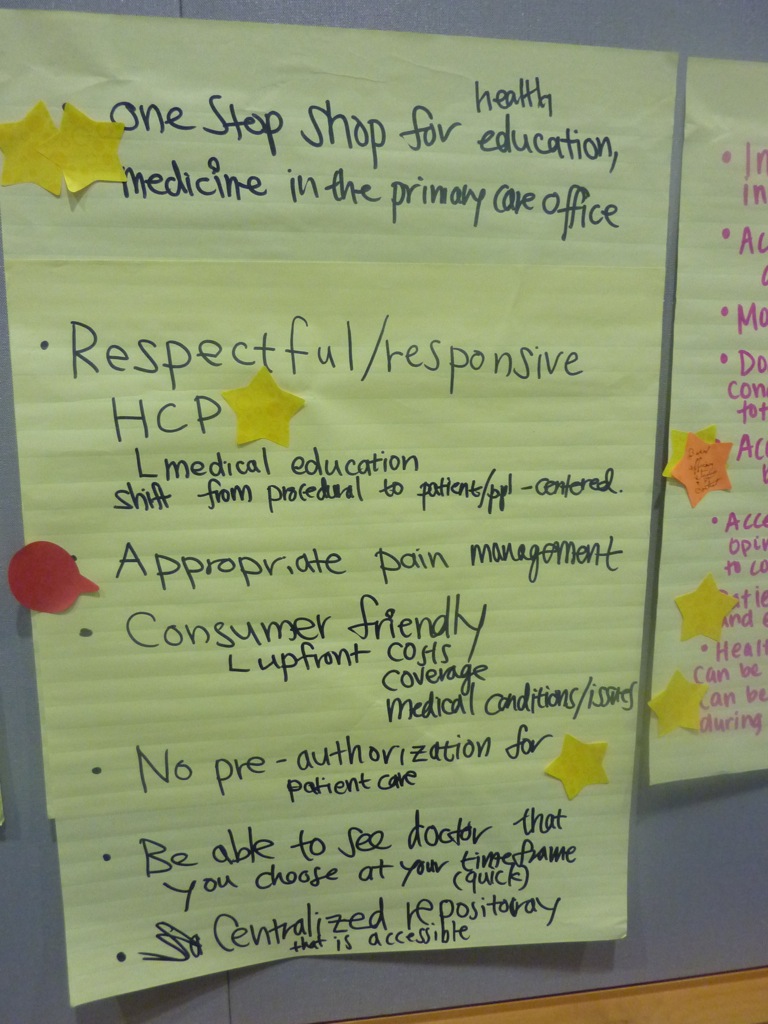 health
• one stop shop for education,
medicine in the primary care office
• Respectful/responsive
HCP
L medical education
shift from procedural to patient/ppl-centered.
• Appropriate pain management
• Consumer friendly
L upfront costs
coverage
medical conditions/issues
• No pre-authorization for
patient care
• Be able to see doctor that
you choose at your timeframe
(quick)
• Centralized repositoray
that is accessible
• In
in
• Ac
• Mo
• Do
con
tot
Acc
b
• Acce
opin
to co
atie
and
• Healt
can be
can be
during